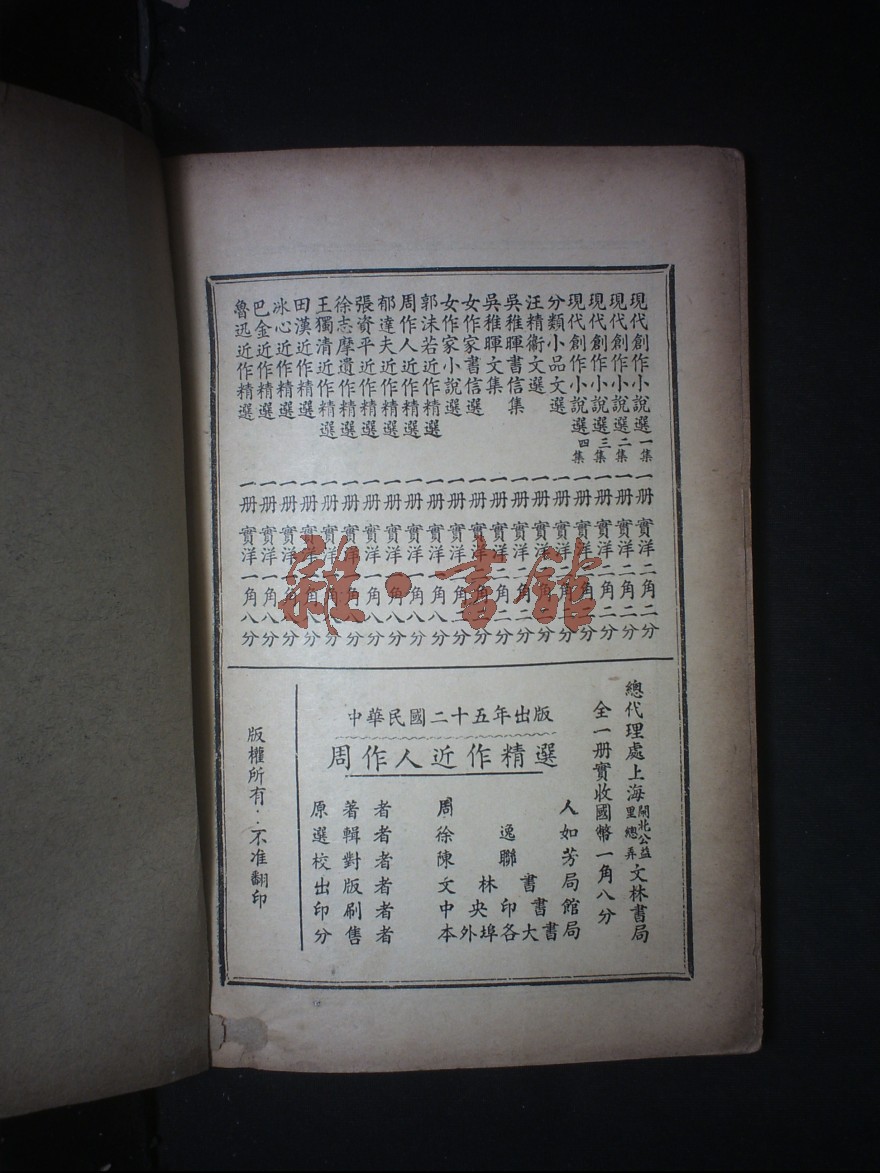 現代創作小說選一集 一册 實洋二角二分
現代創作小說選二集 一册 實洋二角二分
現代創作小說選三集 一册 實洋二角二分
現代創作小說選四集 一册 實洋二角二分
分類小品文選 一册 實洋二角二分
汪精衞文選 一册 實洋二角二分
吳稚暉書信集 一册 實洋二角二分
吳稚暉文集 一册 實洋二角二分
女作家書信選 一册 實洋二角二分
女作家小說選 一册 實洋二角二分
郭沫若近作精選 一册 實洋一角八分
周作人近作精選 一册 實洋一角八分
郁達夫近作精選 一册 實洋一角八分
張資平近作精選 一册 實洋一角八分
徐志摩遺作精選 一册 實洋一角八分
王獨清近作精選 一册 實洋一角八分
田漢近作精選 一册 實洋一角八分
冰心近作精選 一册 實洋一角八分
巴金近作精選 一册 實洋一角八分
魯迅近作精選 一册 實洋一角八分
雜·書館
總代理處上海閘北公益里總弄文林書局
全一册實收國幣一角八分
中華民國二十五年出版
周作人近作精選
原著者 周作人
選輯者 徐逸如
校對者 陳聯芳
出版者 文林書局
印刷者 中央印書館
分售者 本外埠各大書局
版權所有··不准翻印